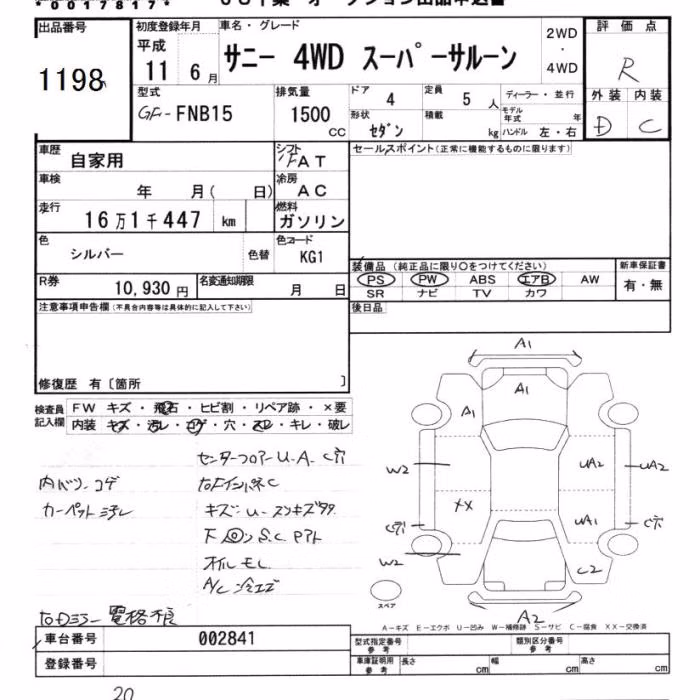 * 0 0 1 7 8 1 7 *
出品番号
1198
初度登録年月
平成
11 6月
車名・グレード
サニー 4WD スーパーサルーン
2WD
・
4WD
評価点
R
外装 内装
D C
型式
GF-FNB15
排気量
1500
CC
ドア
4
定員
5 人
ディーラー・並行
モデル年式 年
形状
セダン
積載
kg
ハンドル 左・右
車歴
自家用
シフト
FAT
セールスポイント(正常に機能するものに限ります)
車検
年 月( 日)
冷房
AC
走行
16万1千447 km
燃料
ガソリン
色
シルバー
色替
色コード
KG1
装備品 (純正品に限り○をつけてください)
PS PW ABS エアB AW
SR ナビ TV カワ
新車保証書
有・無
R券
10,930円
名変通知期限
月 日
後日品
注意事項申告欄(不具合内容等は具体的に記入して下さい)
修復歴 有〔箇所 〕
検査員
記入欄
FW キズ・飛石・ヒビ割・リペア跡・×要
内装 キズ・汚レ・コゲ・穴・スレ・キレ・破レ
センターフロアーU.A. C穴
内ハリ コゲ
カーペット汚レ
下回り S.C Pアト
オイルモレ
A/C 冷エズ
右Dミラー 電格不良
A1
A1
A1
W2
UA2
UA2
XX
UA1
C穴
C穴
W2
C2
A2
スペア
A-キズ E-エクボ U-凹み W-補修跡 S-サビ C-腐食 XX-交換済
車台番号
002841
型式指定番号
参考
類別区分番号
参考
登録番号
車庫証明用
参考
長さ cm
幅 cm
高さ cm
20